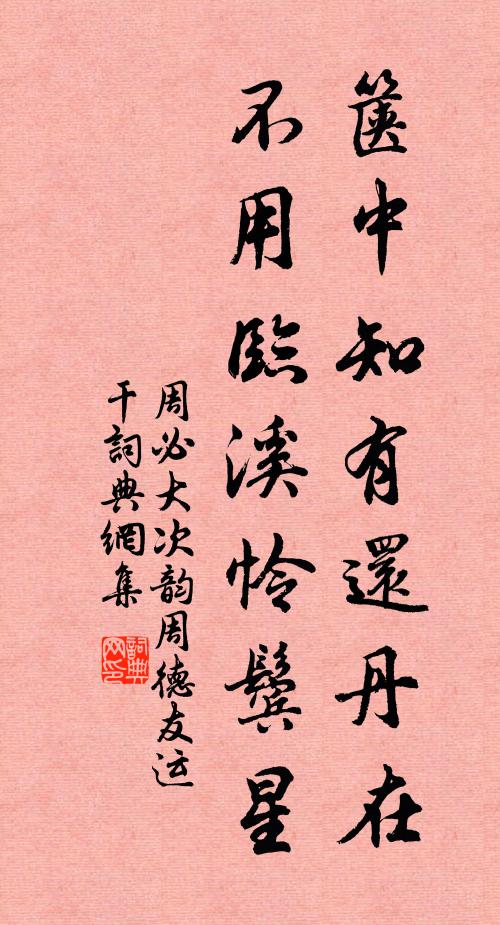 篋中知有還丹在
不用臨溪怜鬢星
周必大次韵周德友运
干詞典網集
詞典网印